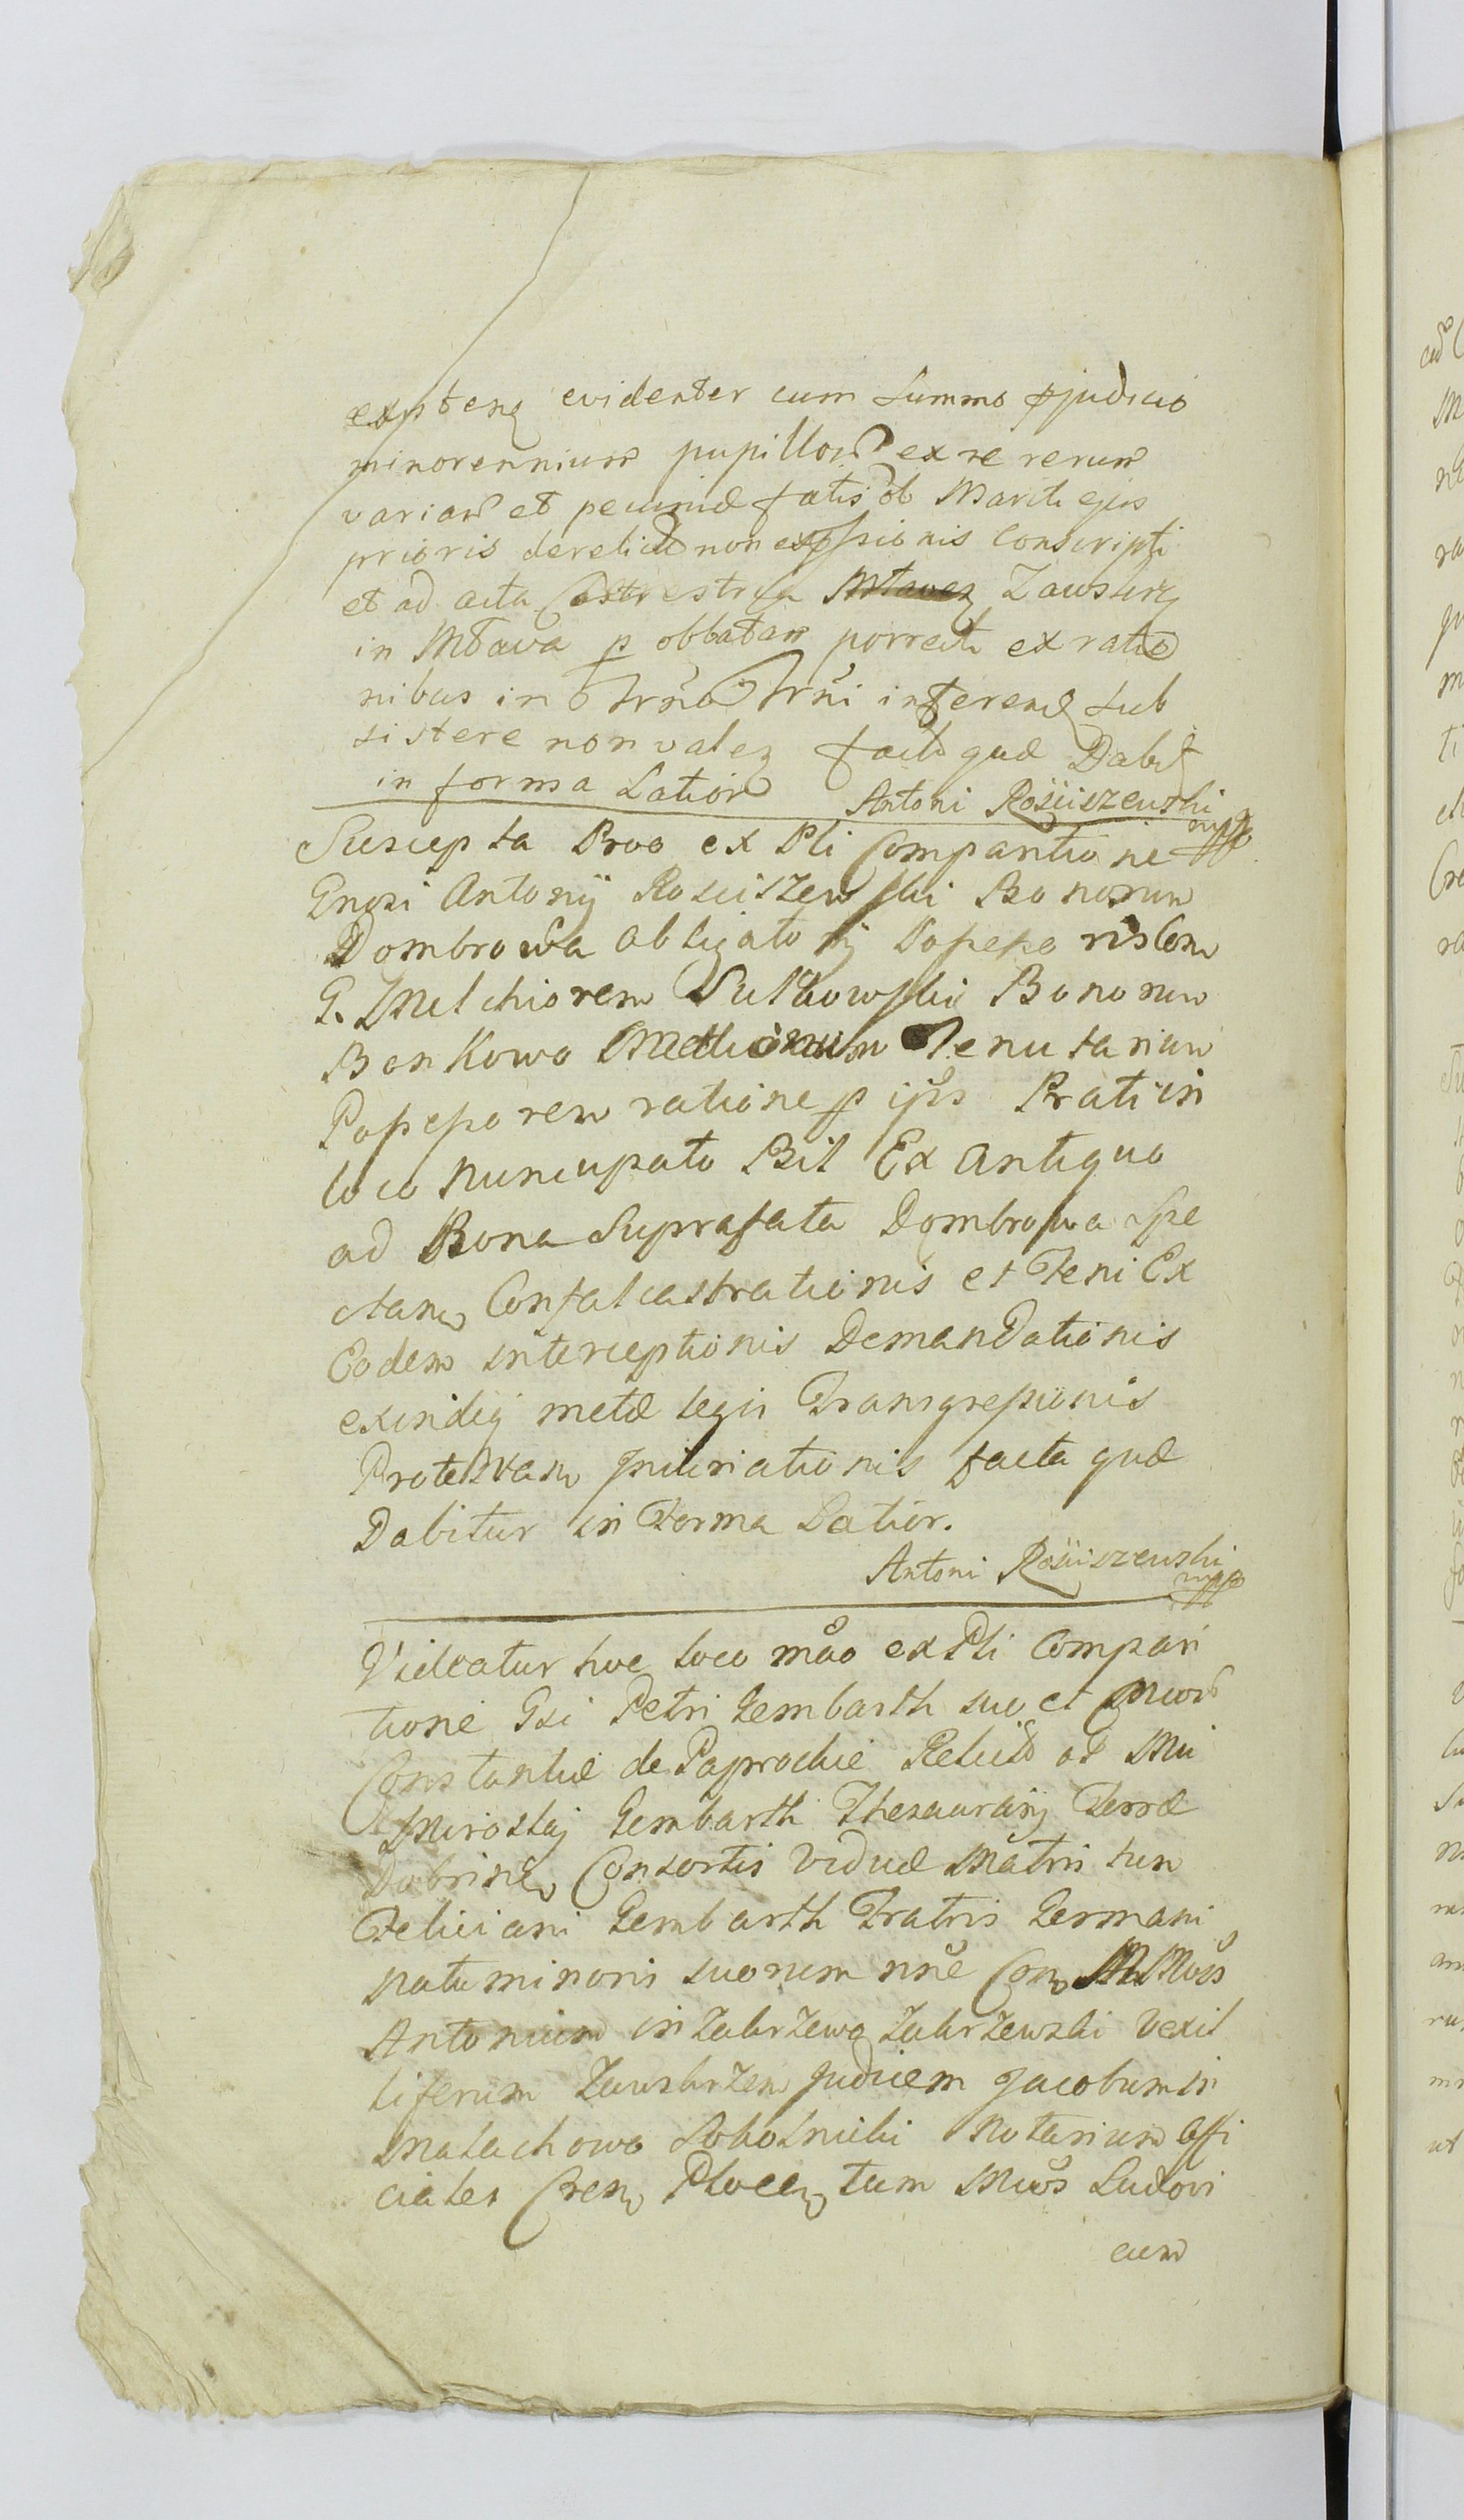 evidenter cum summo pjudicio
minorennium pupillor ex re rerum
variar et pecuniæ fatis ob Mariti ejus
prioris derelict non expssionis Conscripti
et ad acta Castrestria Zawskrz
in Mława p obbatam porrecti ex ratio
nibus in inferend sub
sistere non valen quæ Dabit
in forma Latiori Antoni Rościszewski
mpp
Suscepta Proo ex Pli Comparitione
Gnosi Antonij Rosciszewski Bonorum
Dombrowa obligatorij Possessoris Con
G. Melchiorem Sulkowski Bonorum
Bonkowo Tenutarium
Possessorem ratione p ips Prati in
loco nuncupato Bil Ex Antiquo
ad Bona Suprafata Dombrowa Spe
ctan Confalcastrationis et Feni Ex
Eodem interceptionis Demandationis
exindeq metæ legis Transgressionis
Protestan facta quæ
Dabitur in Forma Latior.
Antoni Rościszewski
mpp
Videatur hoc loco mão ex Pli Compari
tione Gsi Petri Gembarth suo et
Constantiæ de Paprockie Relict ol Mci
Gembarth Thesaurarij Terræ
Dobrinen Consortis Viduæ Matris tum
Feliciani Gembarth Fratris Germani
natu minoris suorum nne Con MMcos
Antonium in Zakrzewo Zakrzewski Vexil
liferum Zawskrzen Judicem Jacobum in
Małachowo Sokolnicki Notarium Offi
ciales Cren Plocen tum Mcos Ludovi
cum